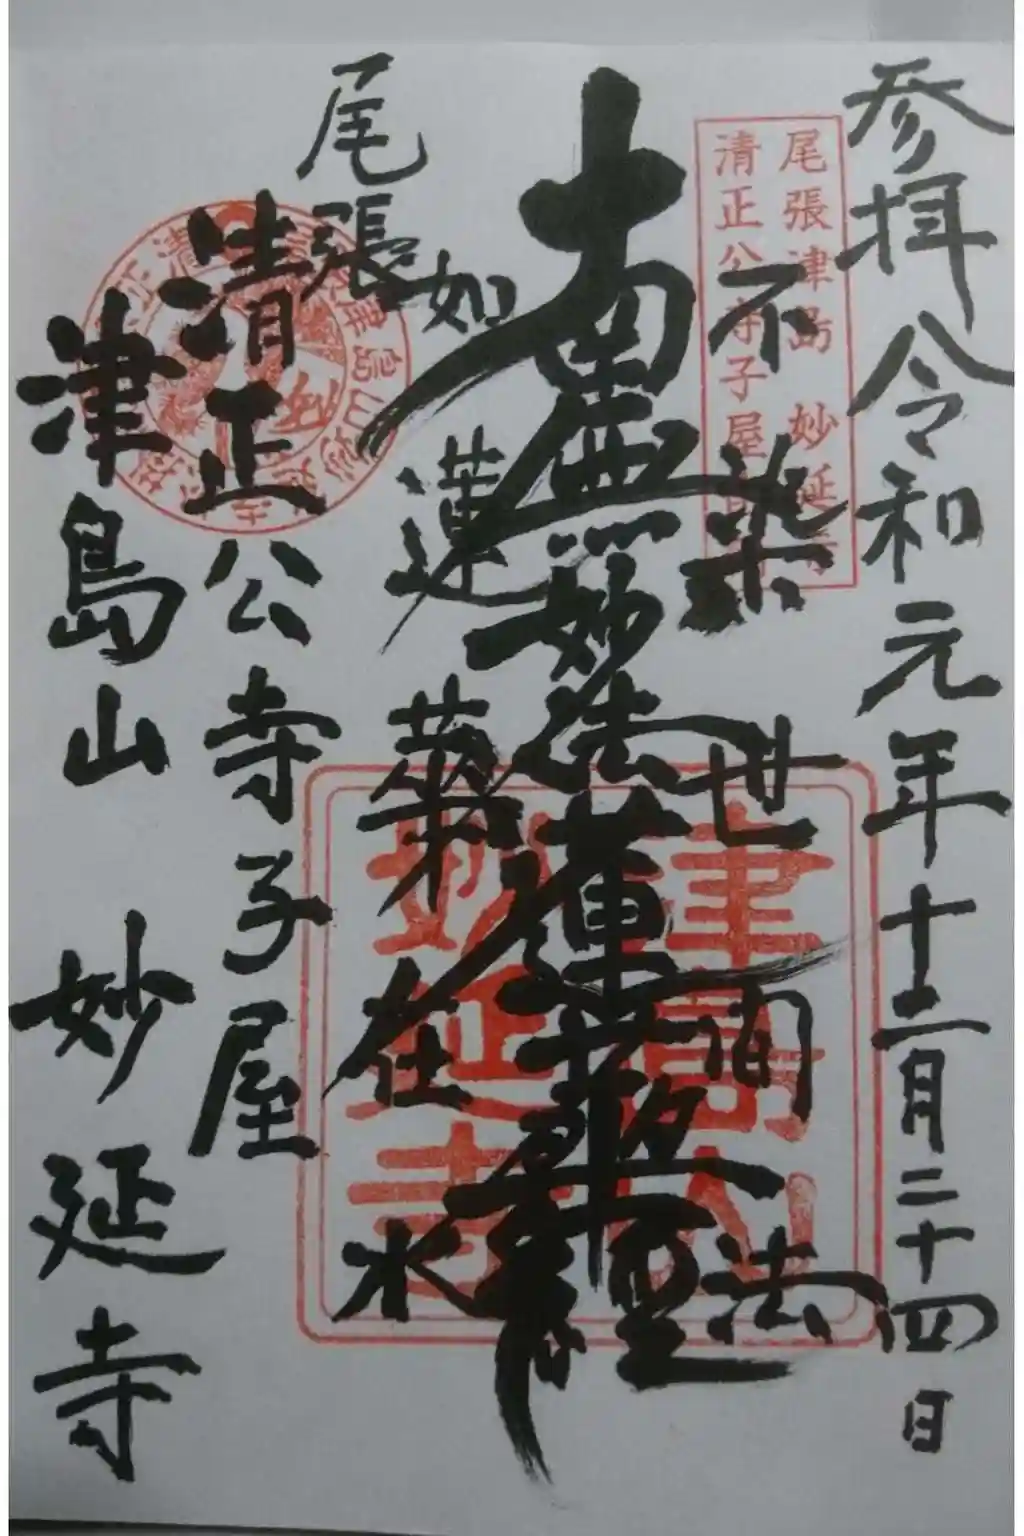 参拝 令和元年十二月二十四日
尾張津島 妙延寺
清正公寺子屋
不染世間法
南無妙法蓮華経
如蓮華在水
尾張
清正公寺子屋
津島山 妙延寺
津島山
妙延寺